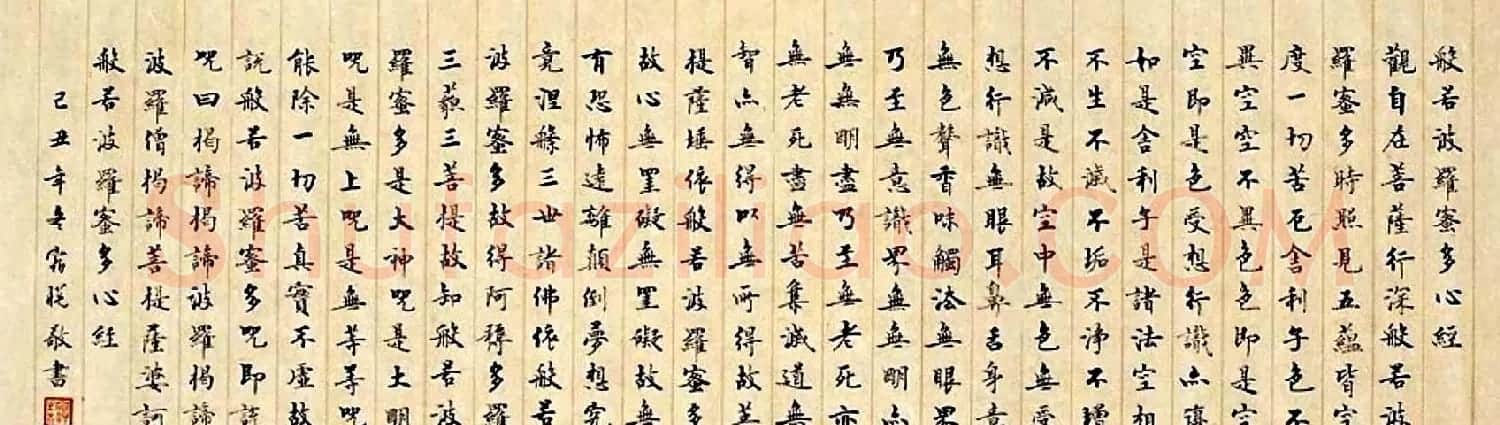 般若波羅蜜多心經
觀自在菩薩行深般若波
羅蜜多時照見五蘊皆空
度一切苦厄舍利子色不
異空空不異色色即是空
空即是色受想行識亦復
如是舍利子是諸法空相
不生不滅不垢不淨不增
不減是故空中無色無受
想行識無眼耳鼻舌身意
無色聲香味觸法無眼界
乃至無意識界無無明亦
無無明盡乃至無老死亦
無老死盡無苦集滅道無
智亦無得以無所得故菩
提薩埵依般若波羅蜜多
故心無罣礙無罣礙故無
有恐怖遠離顛倒夢想究
竟涅槃三世諸佛依般若
波羅蜜多故得阿耨多羅
三藐三菩提故知般若波
羅蜜多是大神咒是大明
咒是無上咒是無等等咒
能除一切苦真實不虛故
説般若波羅蜜多咒即説
咒曰揭諦揭諦波羅揭諦
波羅僧揭諦菩提薩婆訶
般若波羅蜜多心經
己丑年敬書
Shufaziliao.COM